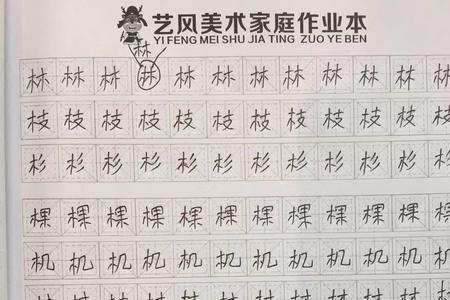 艺风美术家庭作业本
YI FENG MEI SHU JIA TING ZUO YE BEN
林
林林林林林林林林林林林林
枝枝枝枝枝枝枝枝枝枝枝枝
杉杉杉杉杉杉杉杉杉杉杉杉
棵棵棵棵棵棵棵棵棵棵棵棵
机机机机机机机机机机机机